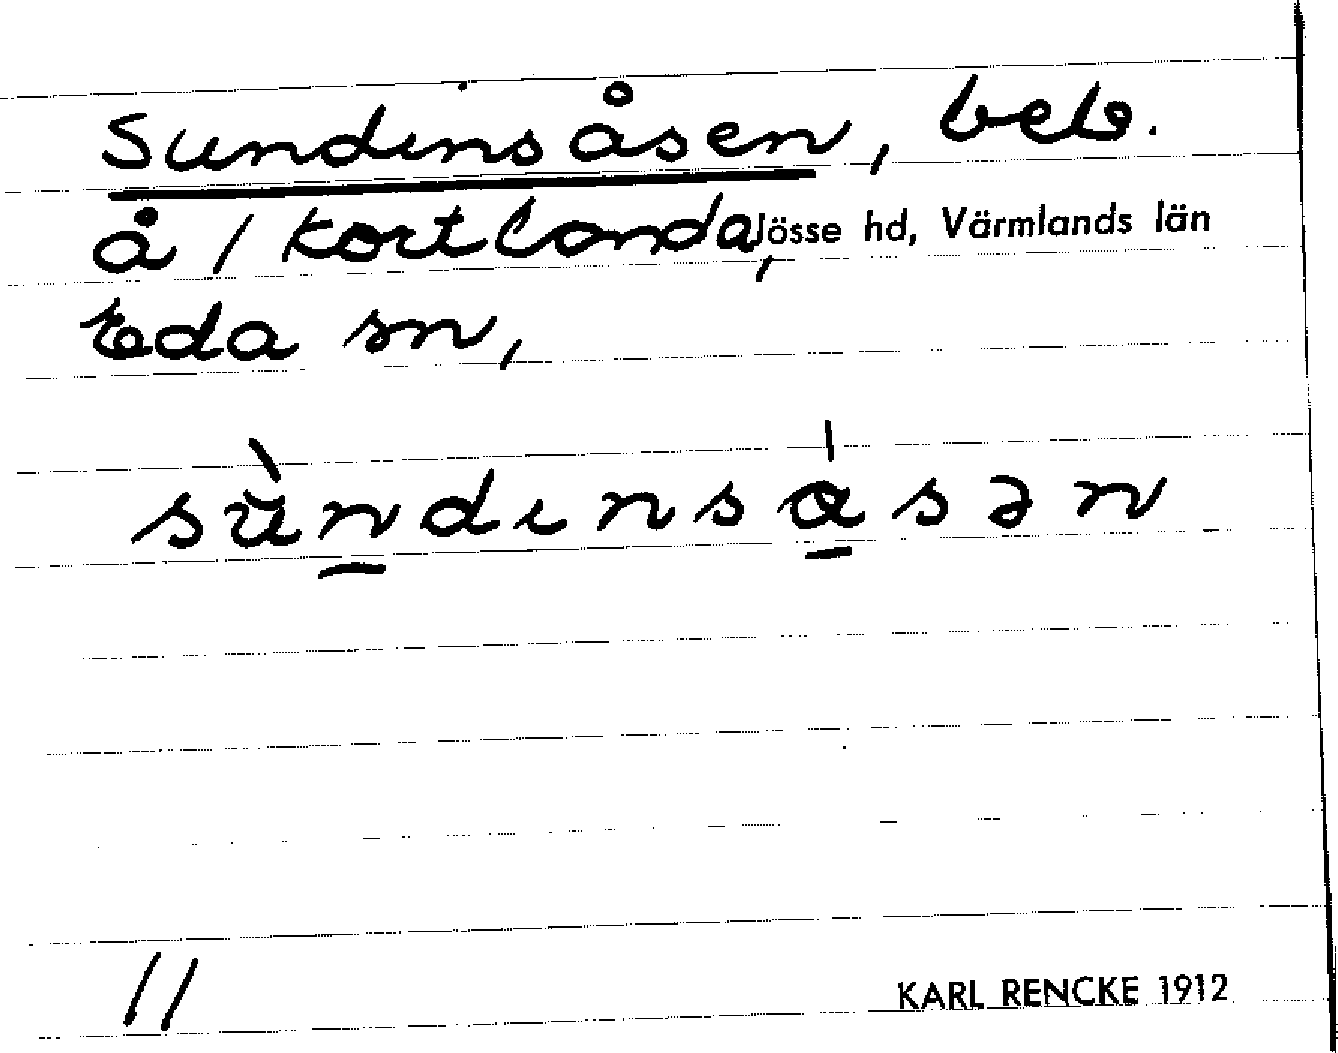 Sundinsåsen, beb.
å / Kortlanda, Jösse hd, Värmlands län
Eda sn,
sùndɩnsása̍sən
11
KARL RENCKE 1912